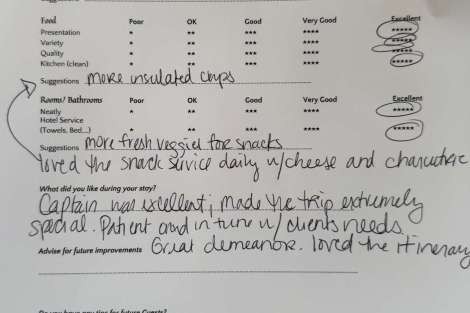 Food Poor OK Good Very Good Excellent
Presentation * ** *** **** *****
Variety * ** *** **** *****
Quality * ** *** **** *****
Kitchen (clean) * ** *** **** *****
Suggestions more insulated cups
Rooms/ Bathrooms Poor OK Good Very Good Excellent
Neatly * ** *** **** *****
Hotel Service
(Towels, Bed...) * ** *** **** *****
Suggestions more fresh veggies for snacks
loved the snack service daily w/cheese and
What did you like during your stay?
Captain was excellent; made the trip extremely
special. Patient and in tune w/ clients needs.
Advise for future improvements Great demeanor. loved the itinerary
Do you have any tips for future Guests?